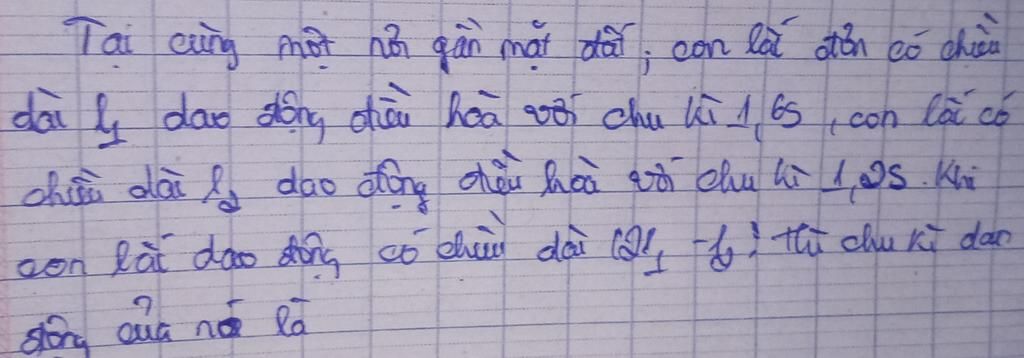 Tại cùng một nơi gần mặt đất, con lắc đơn có chiều
dài l1 dao động điều hoà với chu kì 1,6s, con lắc có
chiều dài l2 dao động điều hoà với chu kì 1,2s. Khi
con lắc dao động có chiều dài (2l1 - l2) thì chu kì dao
động của nó là